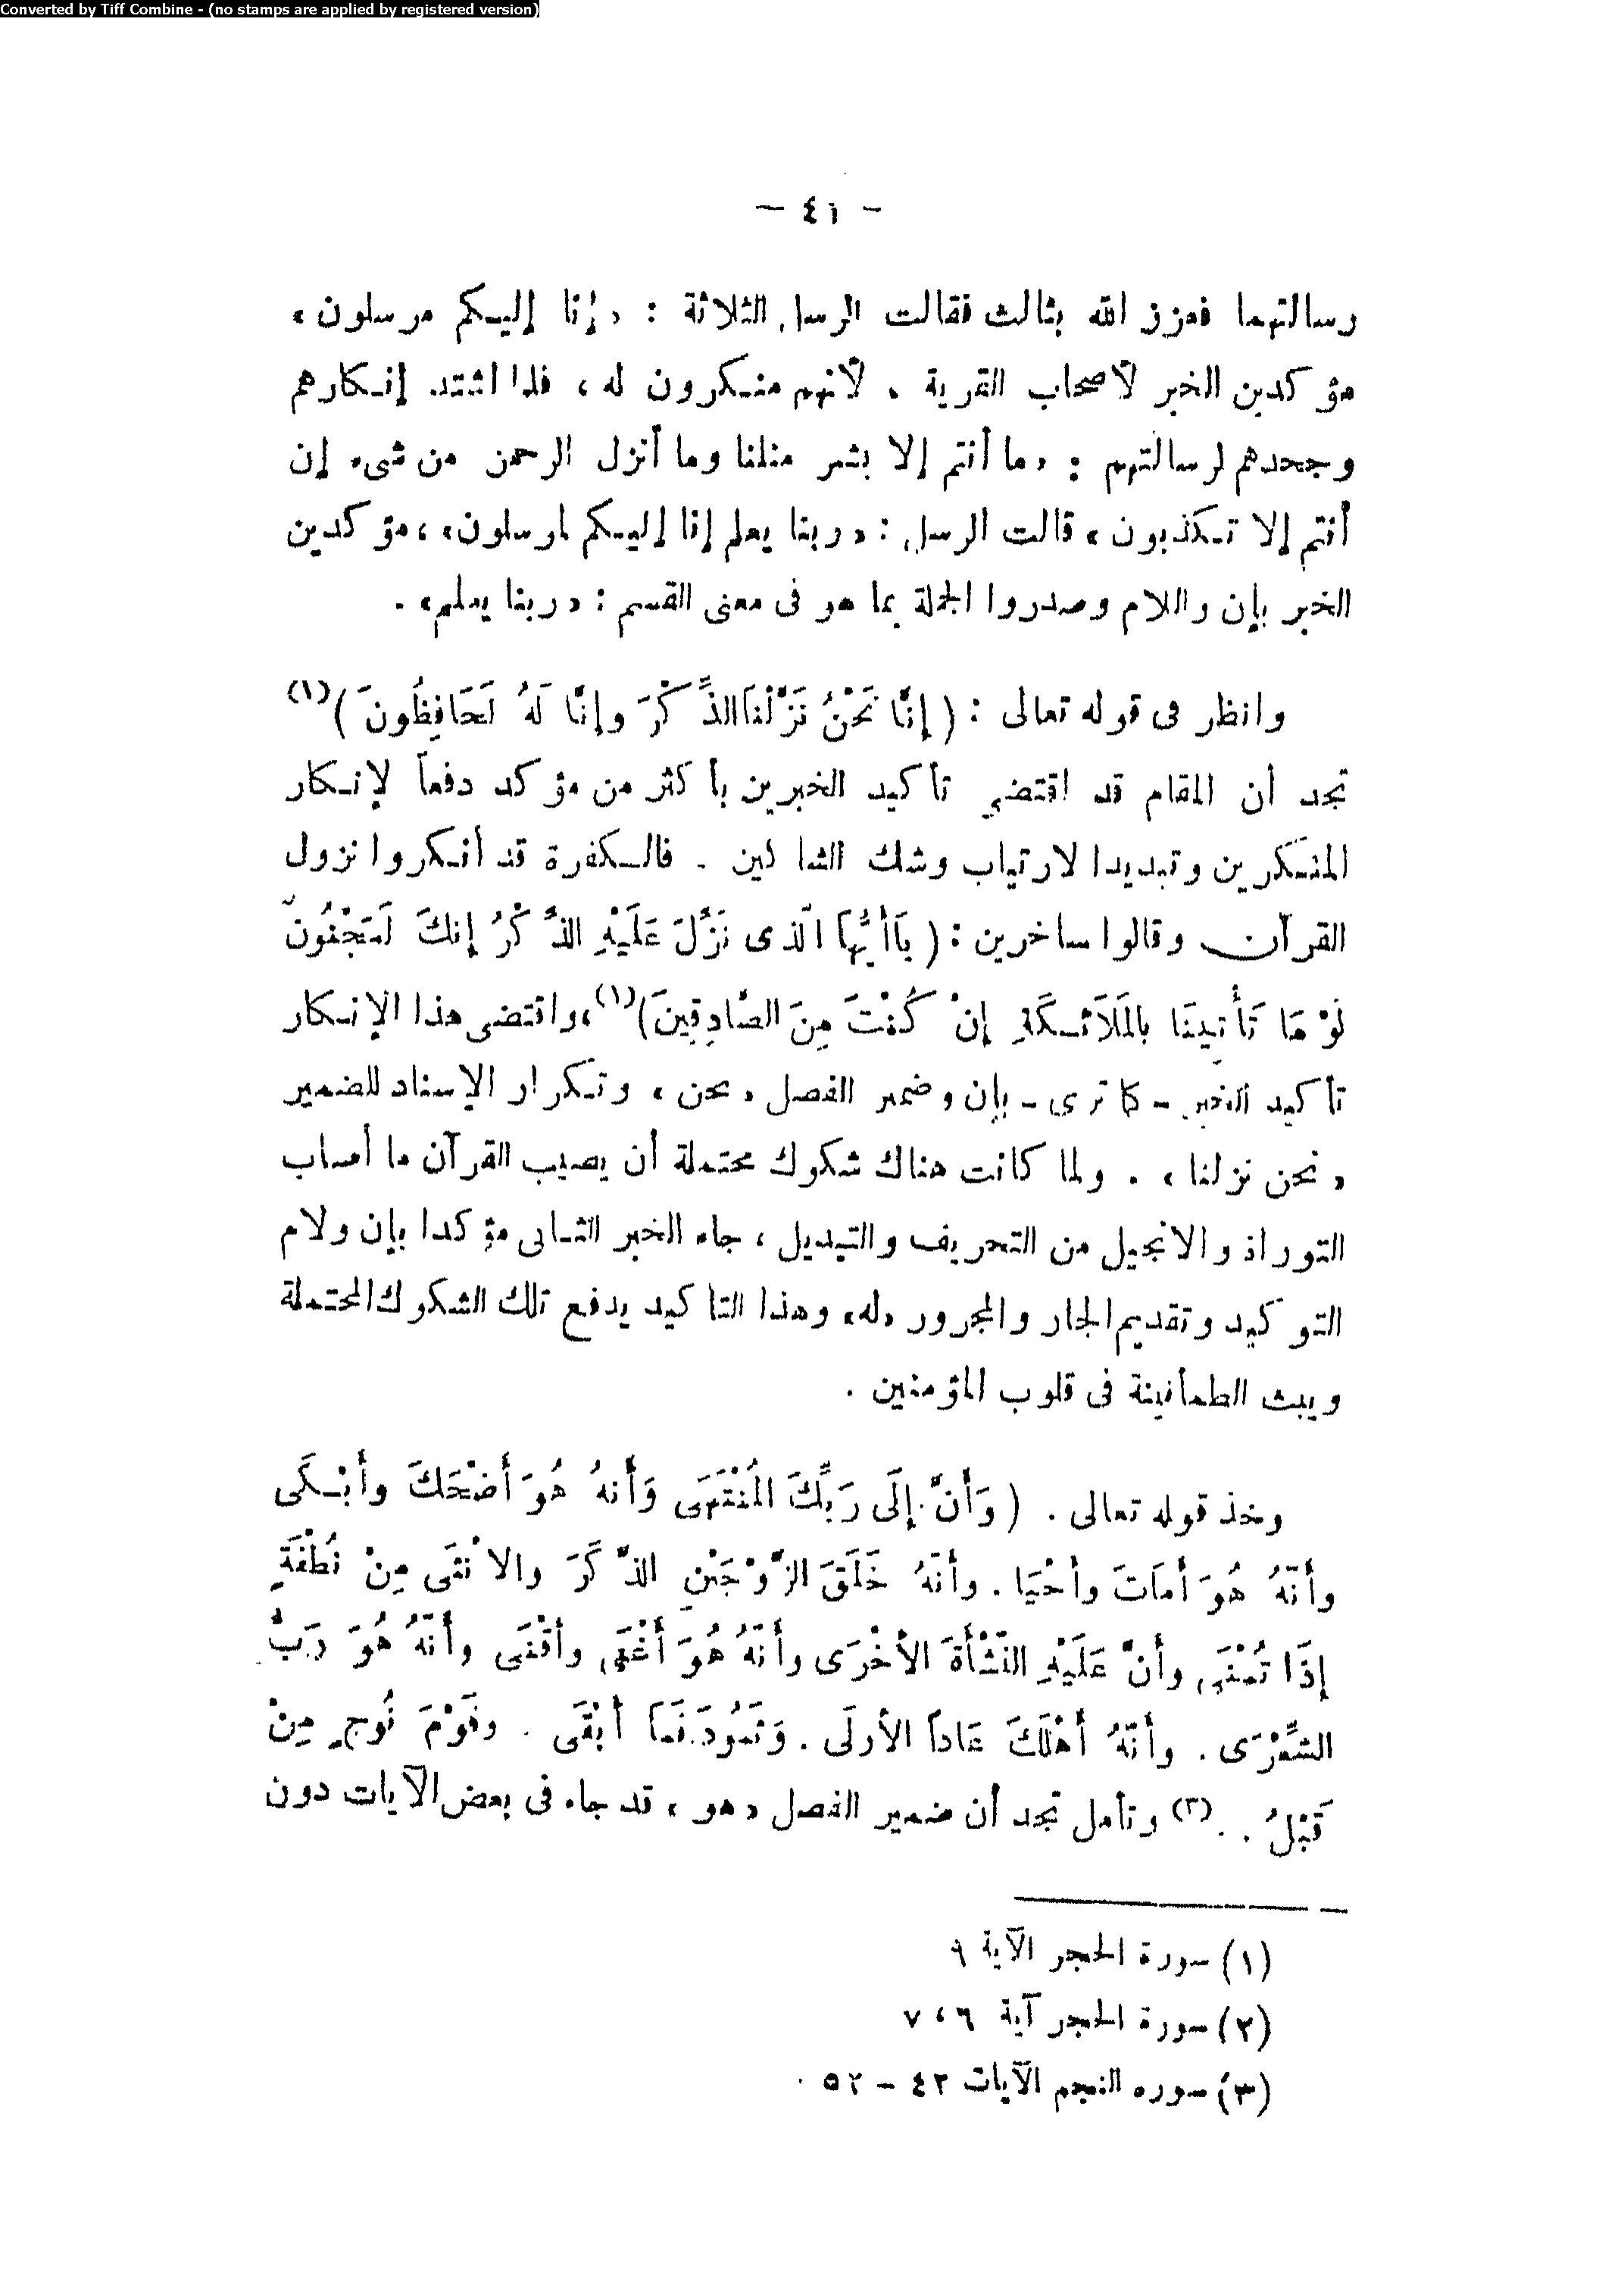 Converted by Tiff Combine - (no stamps are applied by registered version)
- ٤١ -
رسالتهما فعزز الله بثالث فقالت الرسل الثلاثة : « إنا إليكم مرسلون »
مؤكدين الخبر لأصحاب القرية ، لأنهم منكرون له ، فلما اشتد إنكارهم
وجحدهم لرسالتهم : « ما أنتم إلا بشر مثلنا وما أنزل الرحمن من شىء إن
أنتم إلا تكذبون » قالت الرسل : « ربنا يعلم إنا إليكم لمرسلون » ، مؤكدين
الخبر بإن واللام وصدروا الجملة بما هو فى معنى القسم : « ربنا يعلم » .
وانظر فى قوله تعالى : ( إِنَّا نَحْنُ نَزَّلْنَا الذِّكْرَ وإنَّا لَهُ لَحَافِظُونَ )(١)
تجد أن المقام قد اقتضى تأكيد الخبرين بأكثر من مؤكد دفعاً لإنكار
المنكرين وتبديدا لارتياب وشك الشاكين . فالكفرة قد أنكروا نزول
القرآن وقالوا ساخرين : ( يَاأَيُّهَا الَّذى نُزِّلَ عَلَيْهِ الذِّكْرُ إنكَ لَمَجْنُونٌ
لَوْ مَا تَأْتِينَا بالمَلَائكَةِ إنْ كُنْتَ مِنَ الصَّادِقِينَ )(١) ، واقتضى هذا الإنكار
تأكيد الخبر - كما ترى - بإن وضمير الفصل « نحن » وتكرار الإسناد للضمير
« نحن نزلنا » . ولما كانت هناك شكوك محتملة أن يصيب القرآن ما أصاب
التوراة والانجيل من التحريف والتبديل ، جاء الخبر الثانى مؤكدا بإن ولام
التوكيد وتقديم الجار والمجرور «له» وهذا التاكيد يدفع تلك الشكوك المحتملة
ويبث الطمأنينة فى قلوب المؤمنين .
وخذ قوله تعالى . ( وَأَنَّ إِلَى رَبِّكَ المُنْتَهَى وَأَنهُ هُوَ أَضْحَكَ وأَبْكَى
وأَنّهُ هُوَ أمَاتَ وأحْيَا . وأنّهُ خَلَقَ الزَّوْجَيْنِ الذَّكَرَ والانْثَى مِنْ نُطْفَةٍ
إِذَا تُمْنَى وأنَّ عَلَيْهِ النّشْأَةَ الأخْرَى وأنّهُ هُوَ أَغْنَى وأقْنَى وأنّهُ هُوَ رَبُّ
الشِّعْرَى . وأنّهُ أَهْلَكَ عَاداً الأولَى . وَثَمُودَ فَمَا أبْقَى . وقَوْمَ نُوحٍ مِنْ
قَبْلُ . .(٣) وتأمل تجد أن ضمير الفصل « هو » قد جاء فى بعض الآيات دون
(١) سورة الحجر الآية ٩
(٢) سورة الحجر آية ٦ ، ٧
(٣) سوره النجم الآيات ٤٢ - ٥٢ .